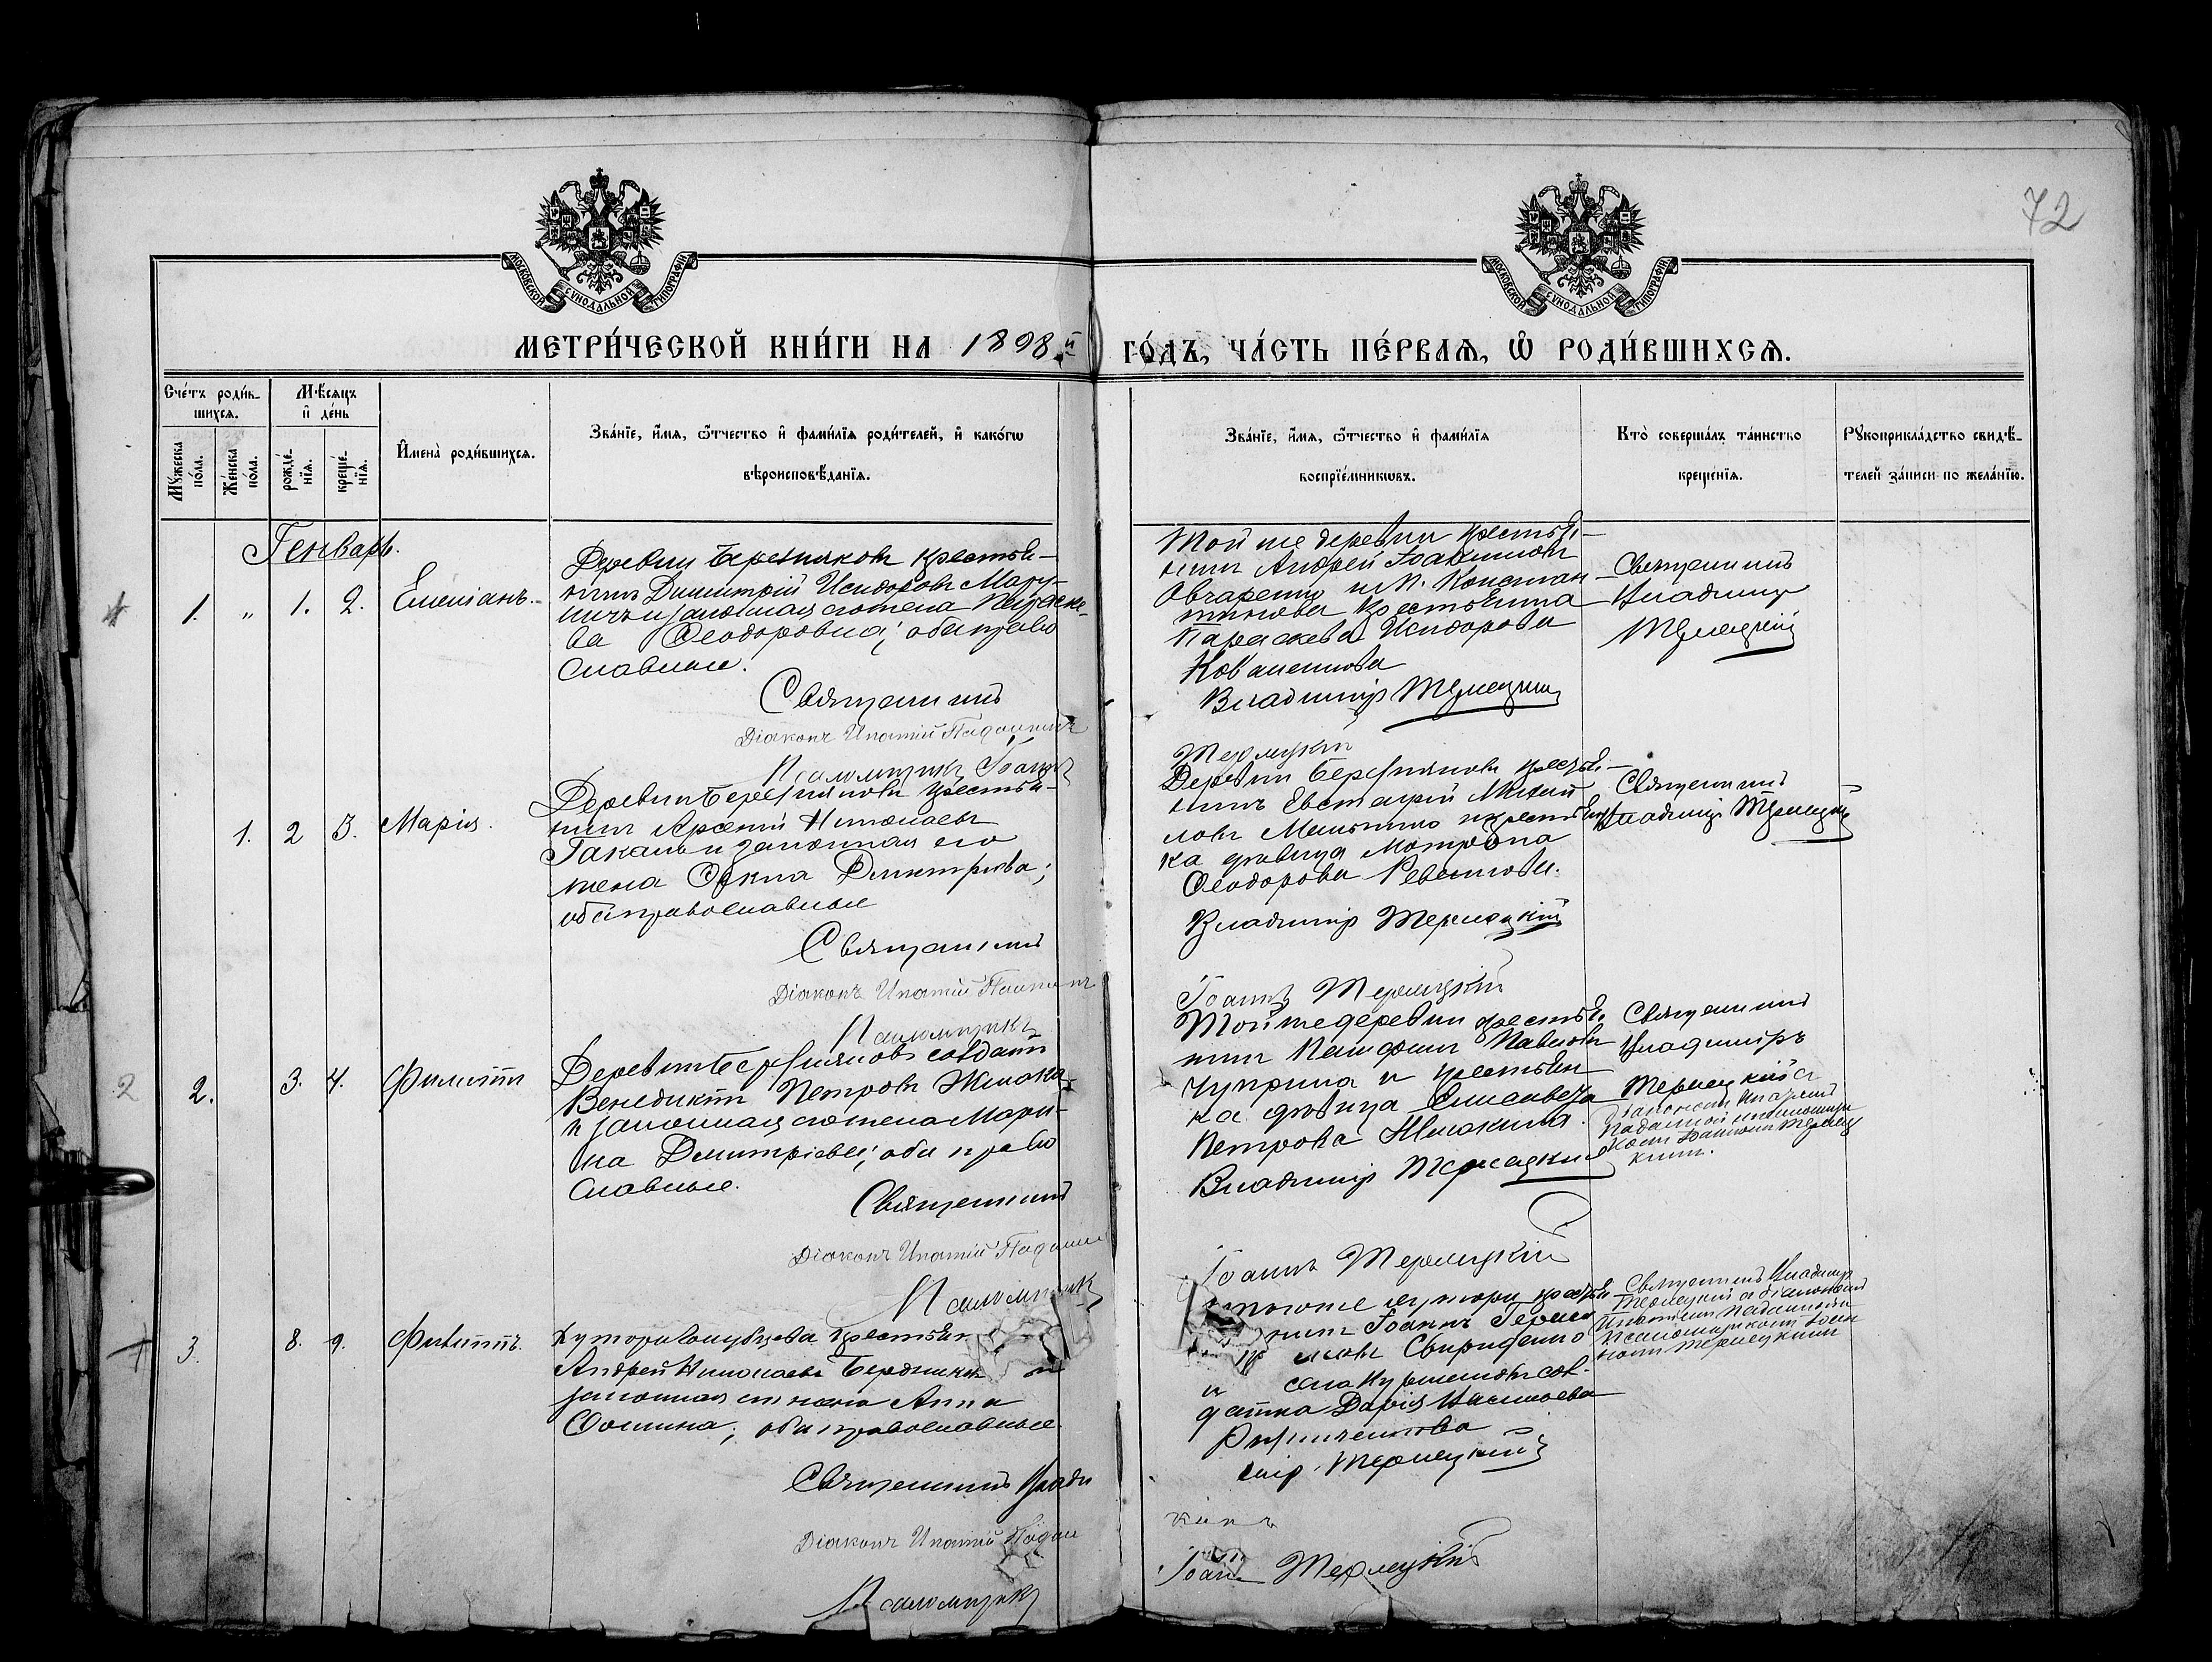 72
МОСКОВСКОЙ СѴНОДАЛЬНОЙ ТИПОГРАФІИ
МОСКОВСКОЙ СѴНОДАЛЬНОЙ ТИПОГРАФІИ
МЕТРИ́ЧЕСКОЙ КНИ́ГИ НА 1898й ГО́ДЪ, ЧА́СТЬ ПЕ́РВАѦ, Ѽ РОДИ́ВШИХСѦ.
Сче́тъ роди́в-
шихсѧ.
Мѹ́жеска по́ла.
Же́нска по́ла.
Мѣ́сѧцъ и҆ де́нь
рожде́-нїѧ.
креще́-нїѧ.
И҆мена̀ роди́вшихсѧ.
Зва́нїе, и҆́мѧ, ѻ҆́тчество и҆ фами́лїѧ роди́телей, и҆ како́гѡ
вѣроисповѣ́данїѧ.
Зва́нїе, и҆́мѧ, ѻ҆́тчество и҆ фами́лїѧ
воспрїе́мникѡвъ.
Кто̀ соверша́лъ та́инство
креще́нїѧ.
Рѹкоприкла́дство свидѣ́-
телей за́писи по жела́нїю.
Генварь.
1. „ 1. 2. Емеліанъ.
Деревни Березняковъ крестья-
нинъ Димитрій Исидоровъ
и законная жена Параске-
ва Ѳеодоровна; оба право
славные.
Священникъ
Діаконъ Ипатій Падалкинъ
Псаломщикъ Іоаннъ
Той же деревни крестья-
нинъ Андрей Іоакимовъ
Овчаренко и
крестьянка
Параскева Исидорова
Коваленкова
Владимір Терлецкій
Терлецкій
Священникъ
Владимір
Терлецкій
1. 2 3. Марія.
Деревни Березняковъ крестья-
нинъ Арсеній Николаевъ
Гакаль и законная его
жена Ѳекла Димитріева;
оба православные
Священникъ
Діаконъ Ипатій Падалкинъ
Псаломщикъ
Деревни Березняковъ крестья-
нинъ Евстафій Михай
ловъ и крестьян
ка дѣвица Матрона
Ѳеодорова
Владимір Терлецкій
Іоаннъ Терлецкій
Священникъ
Владимір Терлецкій
2 2. 3. 4. Филиппъ
Деревни Березняковъ солдатъ
Венедиктъ Петровъ Жмака
и законная жена Мари-
на Димитріева; оба право
славные.
Священникъ
Діаконъ Ипатій Падалки
Псаломщикъ
Той же деревни крестья-
нинъ Памфилъ Павловъ
Чуприна и крестьян
ка дѣвица Елисавета
Петрова Жмакина.
Владимір Терлецкій
Іоаннъ Терлецкій
Священникъ
Владиміръ
Терлецкій с
діакономъ Ипатіемъ
Падалкой и псаломщи
комъ Іоанномъ Терлец
кимъ.
3. 8. 9. Филиппъ.
Хутора Голубцева крестьян
Андрей Николаевъ Бердник и
законная жена Анна
Ѳомина; оба православные.
Священникъ Влади
Діаконъ Ипатій Падал
Псаломщикъ
того же хутора крестьян
нинъ Іоаннъ Гераси
мовъ Свириденко
и села сол-
датка Дарія
мір Терлецкій
кинъ
Іоан Терлецкій
Священникъ Владимір
Терлецкій с діакономъ
Ипатіемъ Падалкинымъ
Псаломщикомъ Іоан
номъ Терлецкимъ